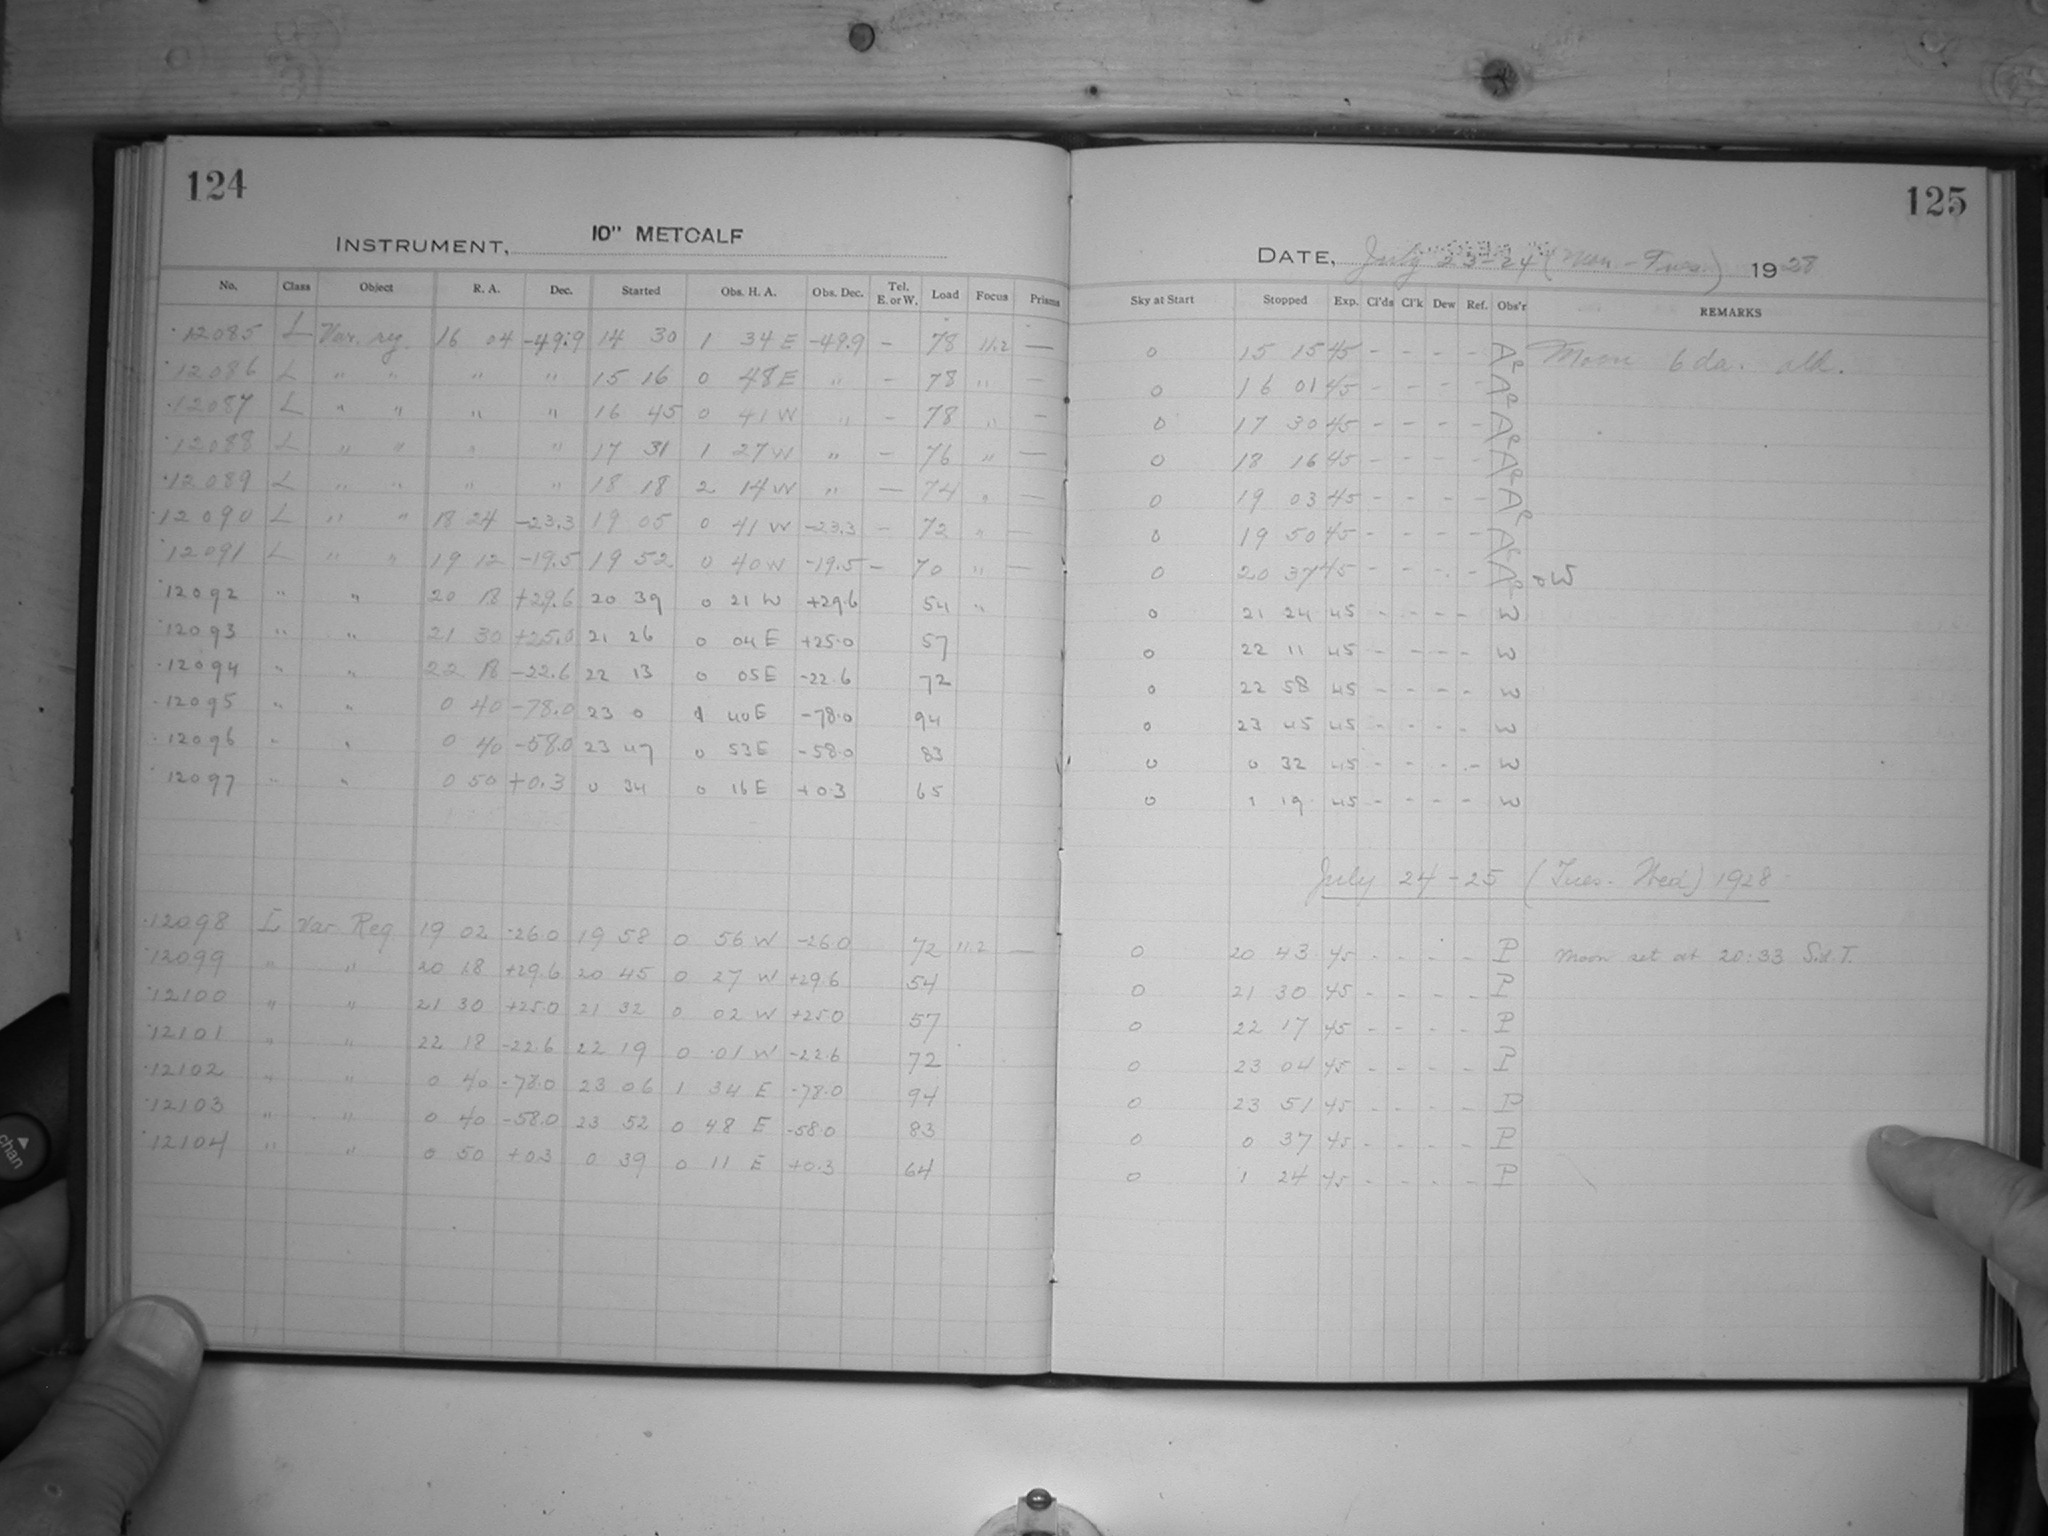 124
INSTRUMENT, 10" METCALF
No. Class Object R. A. Dec. Started Obs. H. A. Obs. Dec. Tel. E. or W. Load Focus Prisms
12085 L Var. reg. 16 04 -49.9 14 30 1 34 E -49.9 - 78 11.2 —
12086 L " " " " 15 16 0 48 E " - 78 " —
12087 L " " " " 16 45 0 41 W " - 78 " —
12088 L " " " " 17 31 1 27 W " - 76 " —
12089 L " " " " 18 18 2 14 W " — 74 " —
12090 L " " 18 24 -23.3 19 05 0 41 W -23.3 - 72 " —
12091 L " " 19 12 -19.5 19 52 0 40 W -19.5 - 70 " —
12092 " " 20 18 +29.6 20 39 0 21 W +29.6 54 "
12093 " " 21 30 +25.0 21 26 0 04 E +25.0 57
12094 " " 22 18 -22.6 22 13 0 05 E -22.6 72
12095 " " 0 40 -78.0 23 0 1 40 E -78.0 94
12096 " " 0 40 -58.0 23 47 0 53 E -58.0 83
12097 " " 0 50 +0.3 0 34 0 16 E +0.3 65
12098 L Var Reg 19 02 -26.0 19 58 0 56 W -26.0 72 11.2 —
12099 " " 20 18 +29.6 20 45 0 27 W +29.6 54
12100 " " 21 30 +25.0 21 32 0 02 W +25.0 57
12101 " " 22 18 -22.6 22 19 0 01 W -22.6 72
12102 " " 0 40 -78.0 23 06 1 34 E -78.0 94
12103 " " 0 40 -58.0 23 52 0 48 E -58.0 83
12104 " " 0 50 +0.3 0 39 0 11 E +0.3 64
125
DATE, July 23-24 (Mon-Tues.) 1928
Sky at Start Stopped Exp. Cl'ds Cl'k Dew Ref. Obs'r REMARKS
0 15 15 45 - - - - Moon 6 da. old.
0 16 01 45 - - - -
0 17 30 45 - - - -
0 18 16 45 - - - -
0 19 03 45 - - - -
0 19 50 45 - - - -
0 20 37 45 - - - - W
0 21 24 45 - - - - W
0 22 11 45 - - - - W
0 22 58 45 - - - - W
0 23 45 45 - - - - W
0 0 32 45 - - - - W
0 1 19 45 - - - - W
July 24-25 (Tues. Wed) 1928
0 20 43 45 - - - - P Moon set at 20:33 Sid. T.
0 21 30 45 - - - - P
0 22 17 45 - - - - P
0 23 04 45 - - - - P
0 23 51 45 - - - - P
0 0 37 45 - - - - P
0 1 24 45 - - - - P
chan